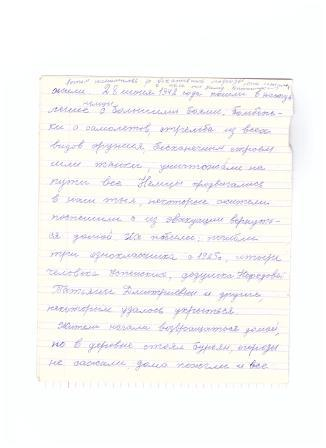 жили. 28 июня 1942 года пошли в наступ-
ление с большими боями, бомбёж-
ки с самолетов, стрельба из всех
видов оружия бесконечным строем
шли танки, уничтожали на
пути все. Немцы продвигались
в наш тыл, некоторые жители
поспешили из эвакуации вернуть-
ся домой. Их побило, погибли
три одноклассника с 1925г,
человека Успенских, дедушка
Татьяны Дмитриевны и другие
некоторым удалось укрыться.
Жители начали возвращаться домой,
но в деревне стоял бурьян, огороды
не сажали, дома пожгли и все